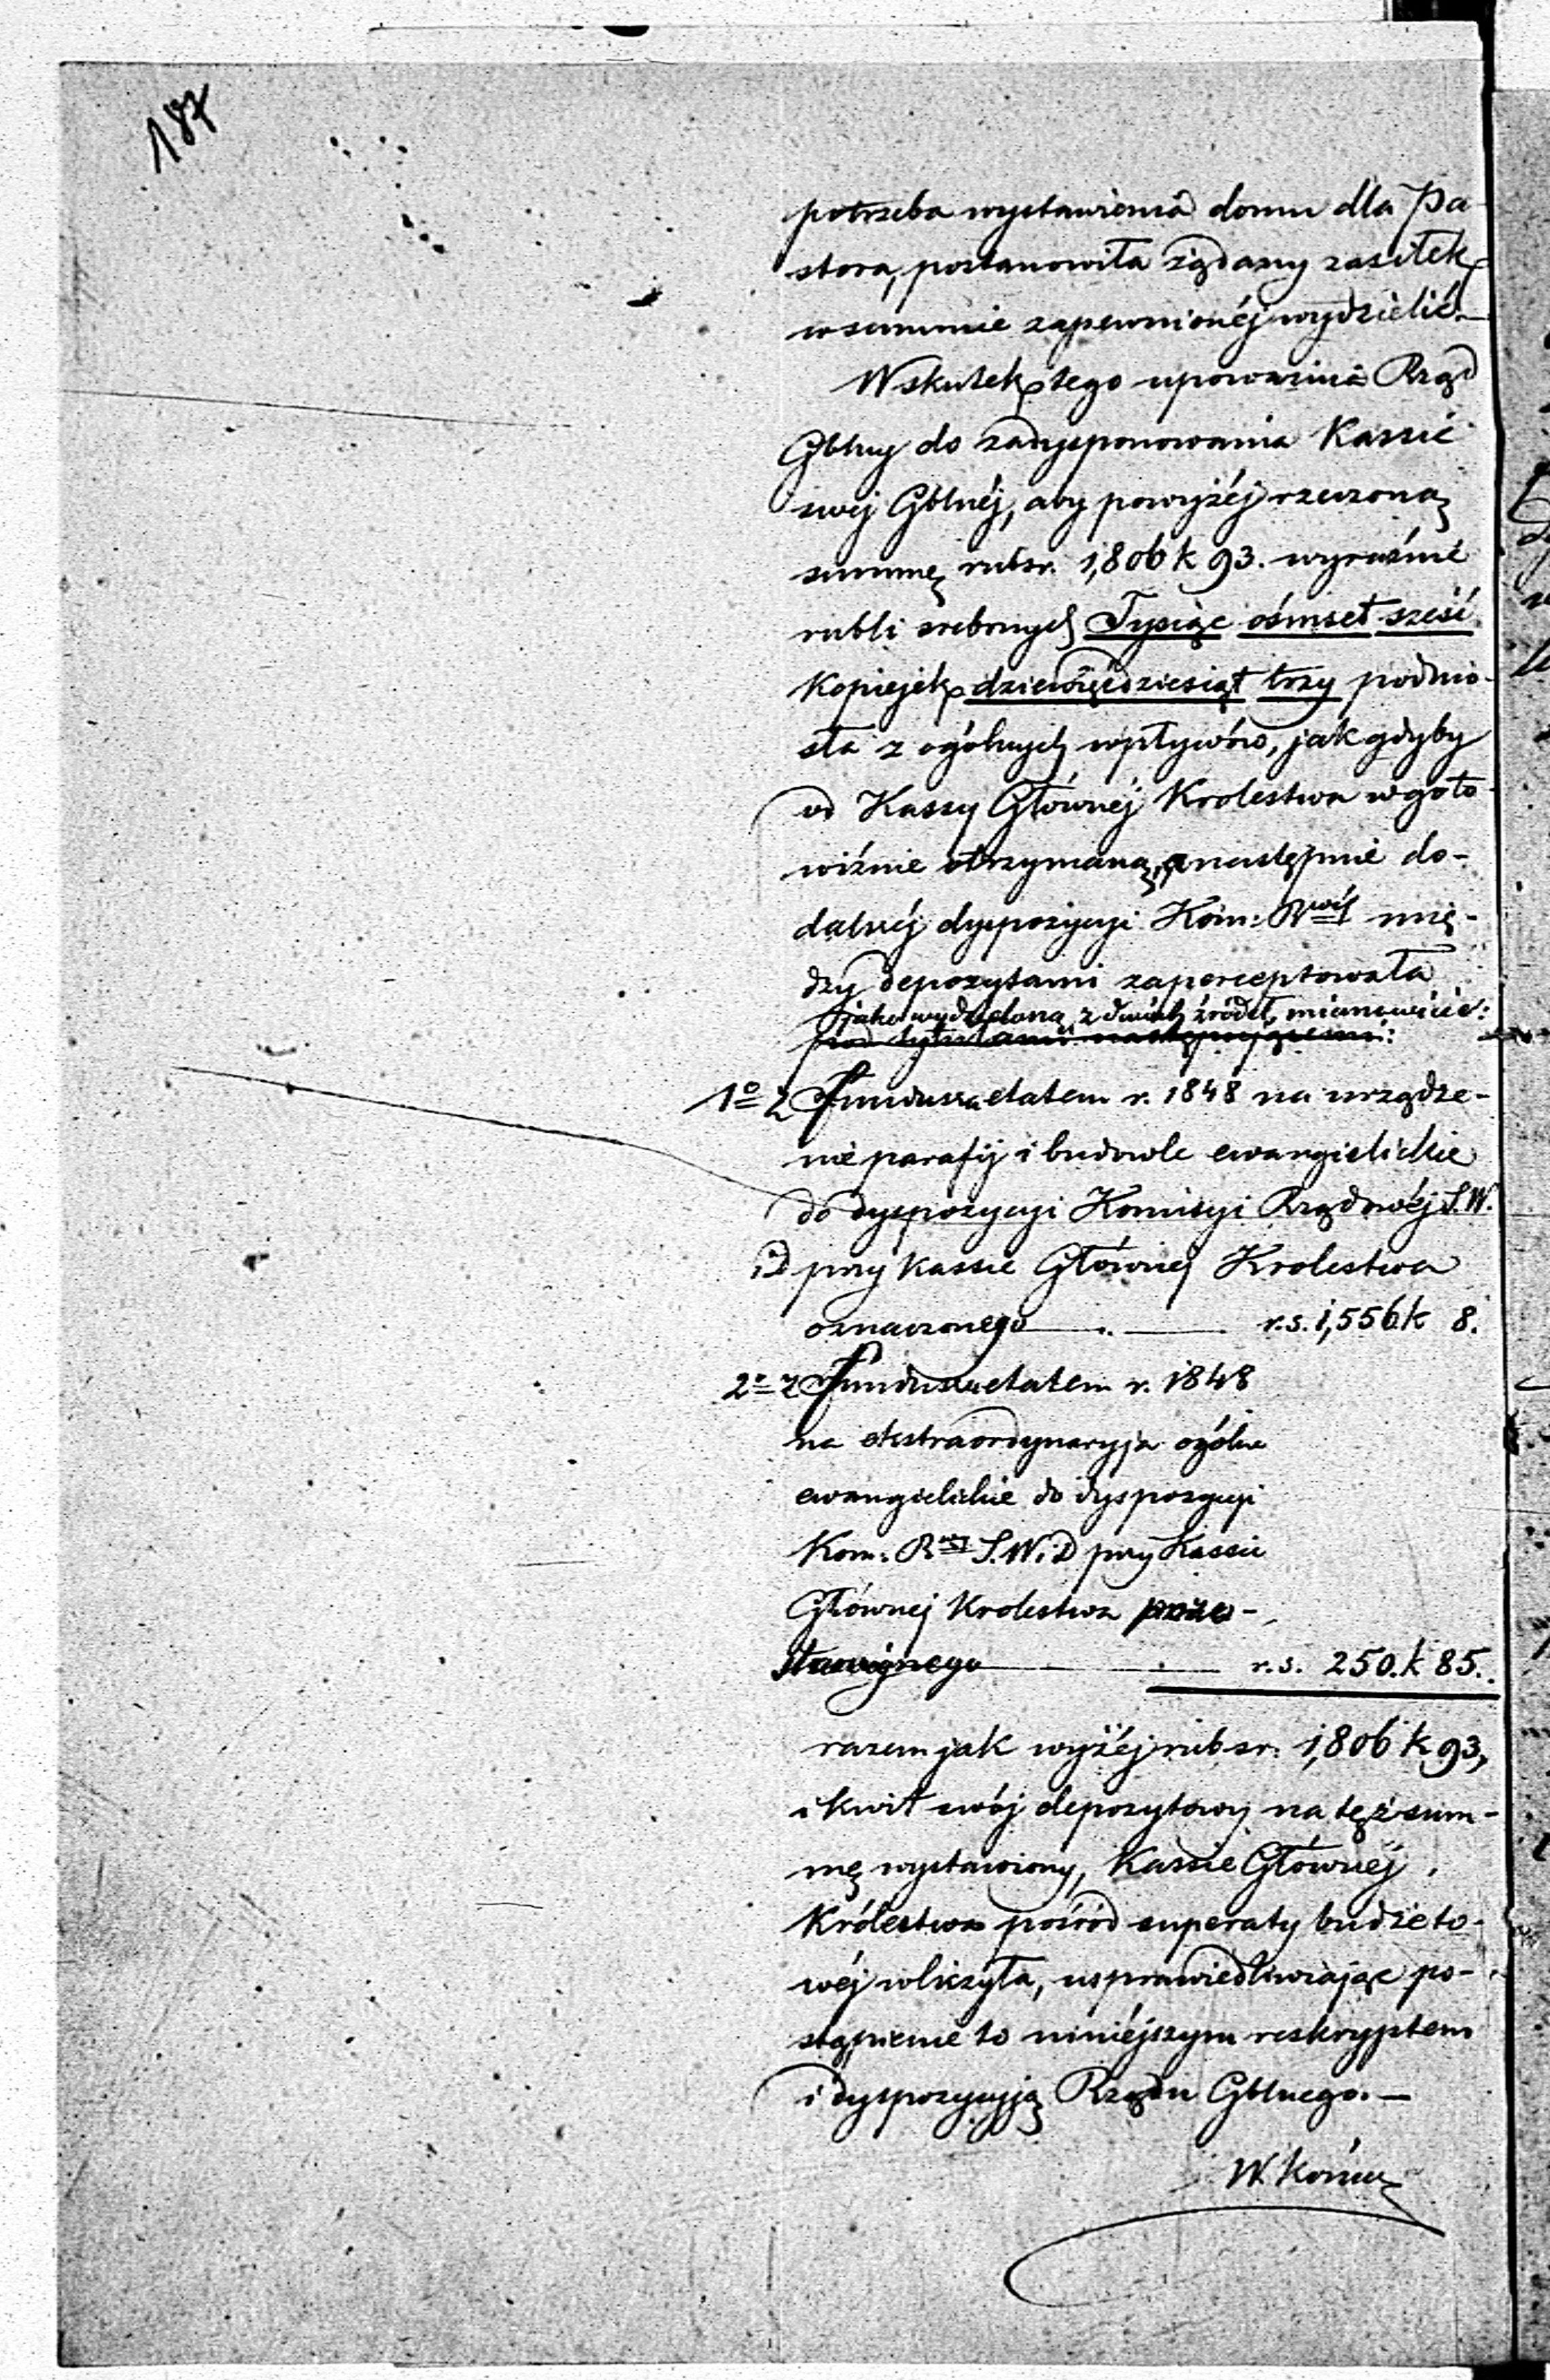 187
potrzeba wystawienia domu dla Pa-
stora, postanowiła żądany zasiłek
w summie zapewnionéj wydzielić.—
W skutek tego upoważnia Rząd
Gblny do zadysponowania Kassie
swéj Gblnéj, aby powyżéj rzeczoną
summę rubsr. 1,806 k 93. wyraźnie
rubli srebrnych Tysiąc ośmset sześć
Kopiejek dziewięćdziesiąt trzy podnio-
sła z ogólnych wpływów, jak gdyby
od Kassy Głównéj Krolestwa w goto-
wiźnie otrzymaną, a następnie do-
dalszéj dyspozycyi Kom: Rwéj mię-
dzy depozytami zaperceptowała
jako wydzieloną z dwóch źródeł, mianowicie:
pod tytułami następującemi:
1o z Funduszu etatem r. 1848 na urządze-
nie parafij i budowle ewangielickie
do dyspozycyi Komisyi Rządowéj S.W.
iD przy Kassie Głównej Krolestwa
oznaczonego — . — r.s. 1,556 k 8.
2o z Funduszu etatem r. 1848
na ekstraordynaryja ogólne
ewangielickie do dyspozycyi
Kom: Rwéj S.W.iD przy Kassie
Głównej Krolestwa
r.s. 250. k 85.
razem jak wyżéj rubsr. 1,806 k 93,
i kwit swój depozytowy na tęż sum-
mę wystawiony, Kassie Głównéj
Królestwa pośród superaty budżeto-
wéj wliczyła, usprawiedliwiając po-
stąpienie to niniéjszym reskryptem
i dyspozycyją Rządu Gblnego.—